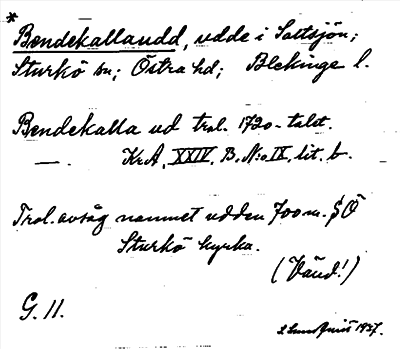 * Bendekallaudd, udde i Saltsjön;
Sturkö sn; Östra hd; Blekinge l.
Bendekalla ud trol. 1720-talet.
— . Kr.A. XXIV. B. N:o IX, lit. b.
Trol. avsåg namnet udden 700 m. SÖ
Sturkö kyrka.
(Vänd!)
G. 11.
1927.